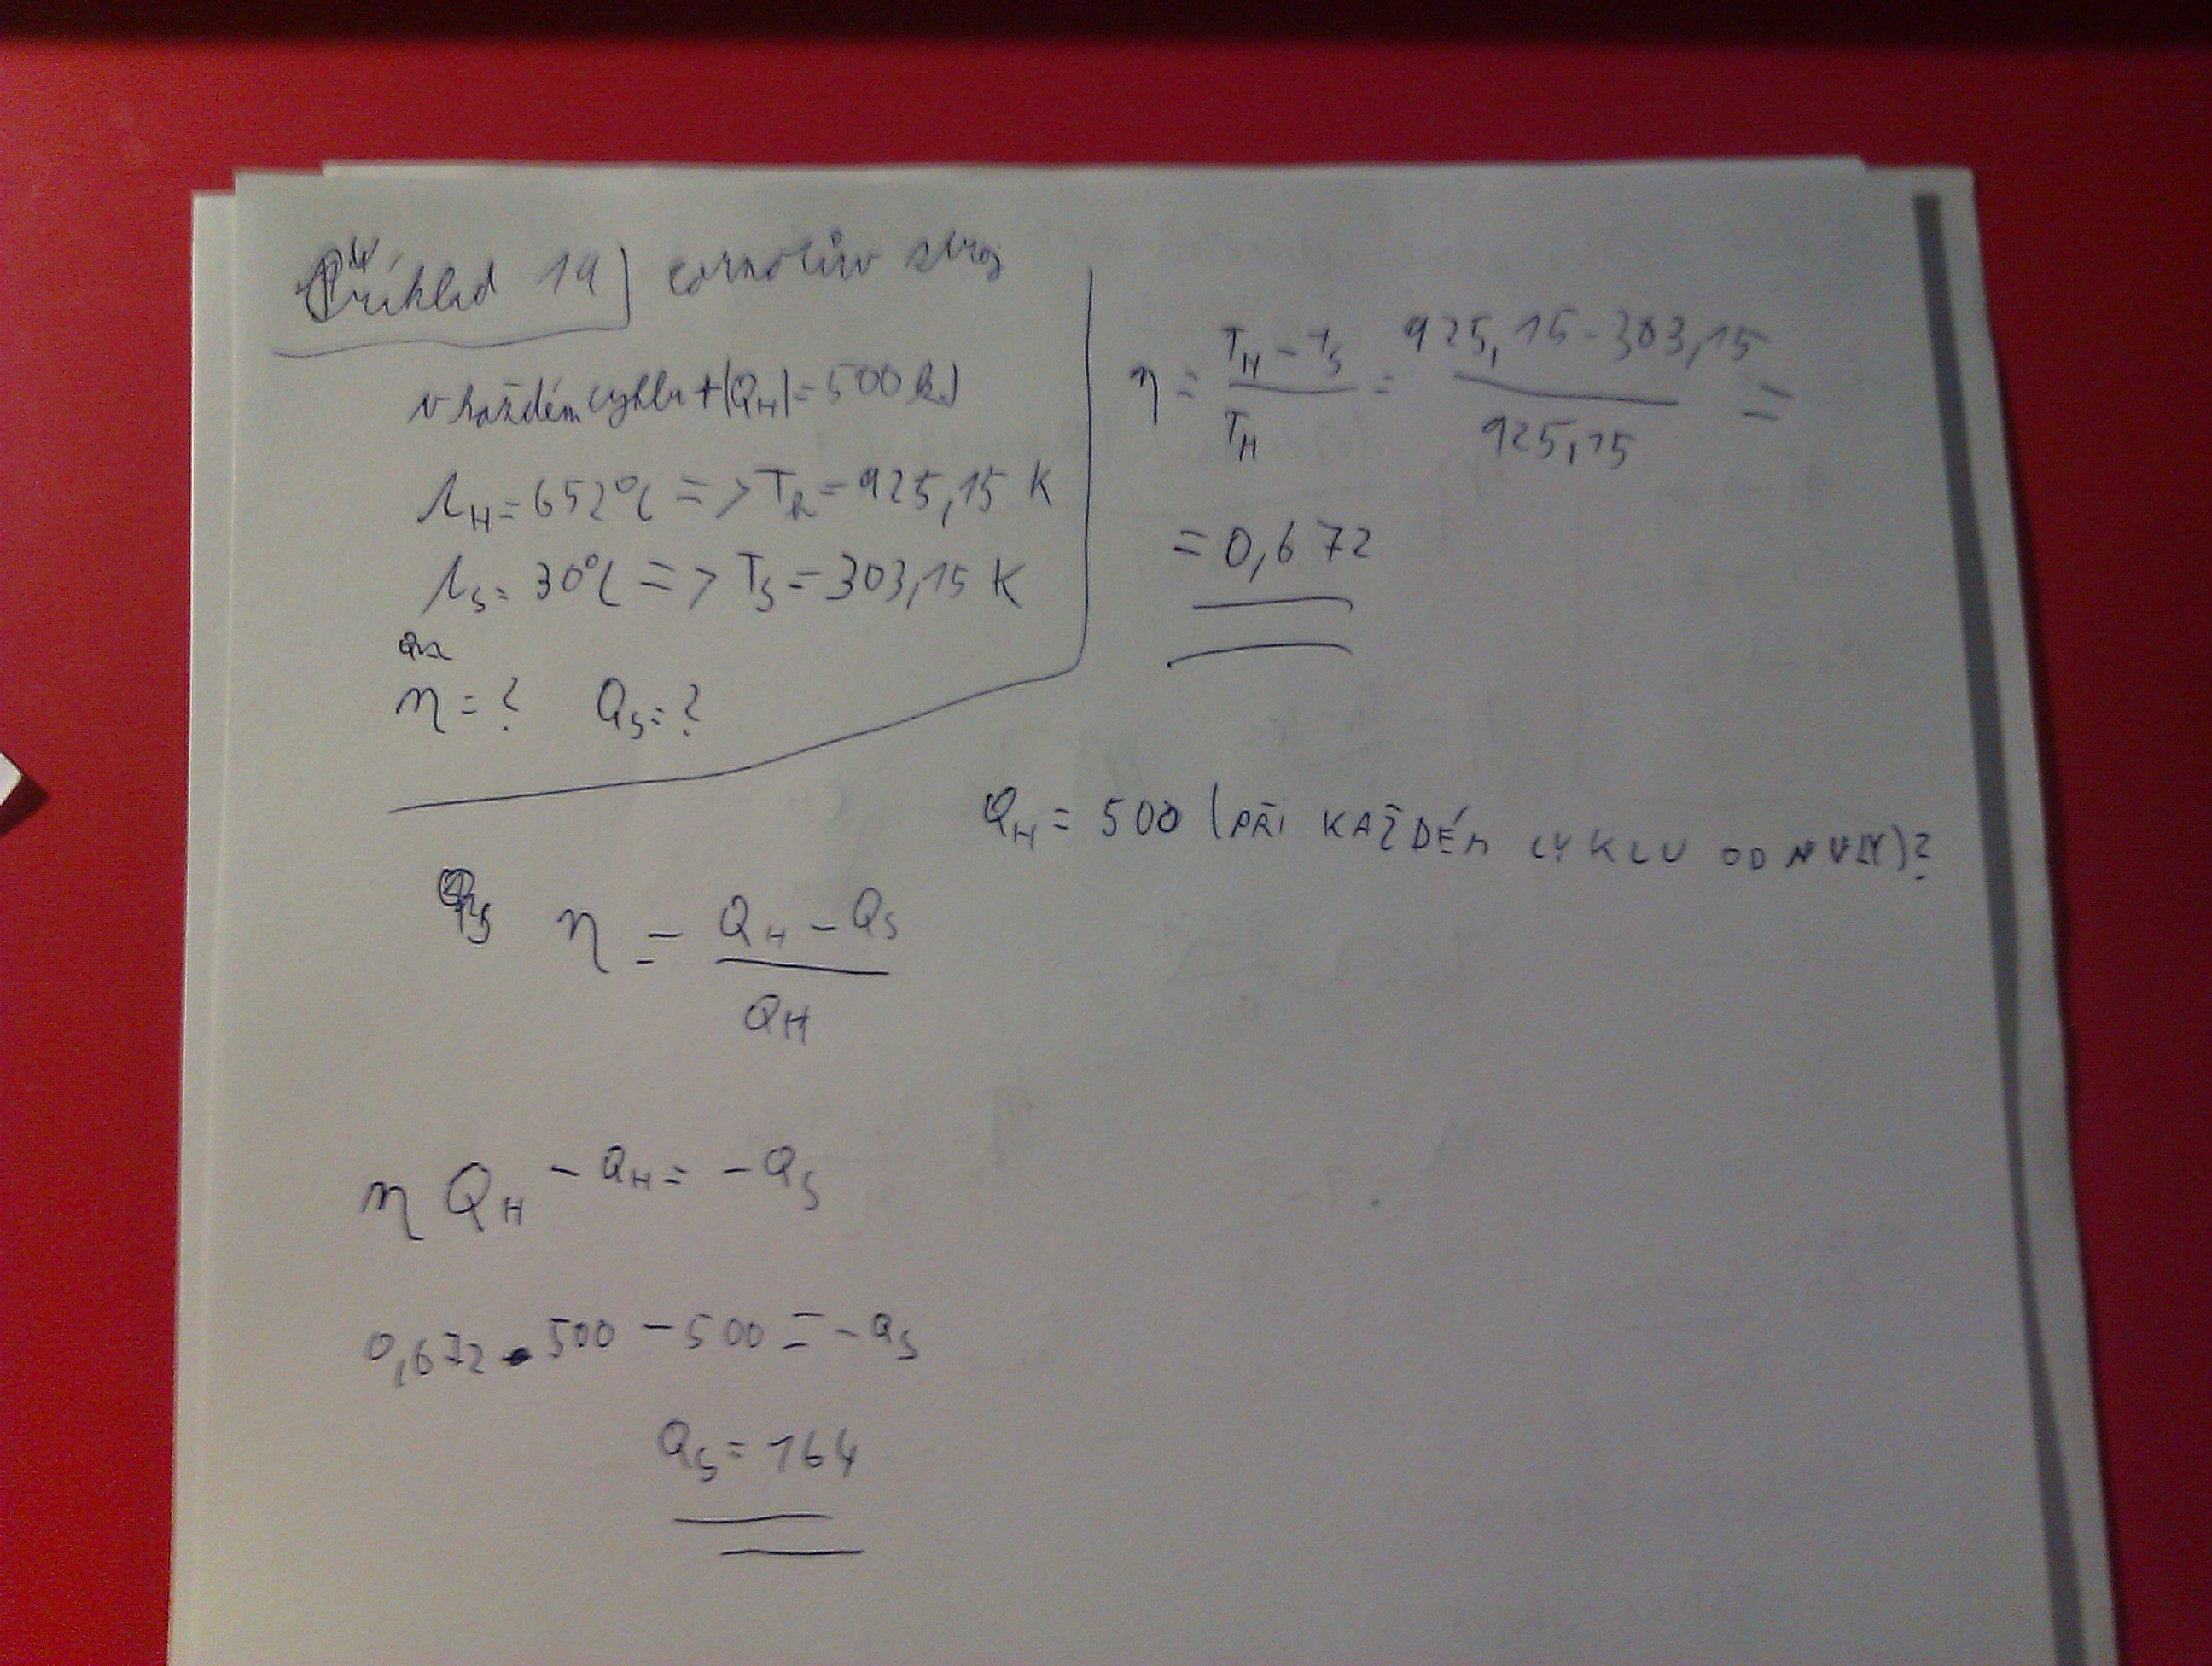 Příklad 19) carnotův stroj
v každém cyklu +|QH| = 500 kJ
tH = 652°C => Th = 925,15 K
tS = 30°C => TS = 303,15 K
η = ? QS = ?
η = (TH - TS) / TH = (925,15 - 303,15) / 925,15 =
= 0,672
QH = 500 (PŘI KAŽDÉM CYKLU OD NULY)?
η = (QH - QS) / QH
η QH - QH = - QS
0,672 . 500 - 500 = - QS
QS = 164